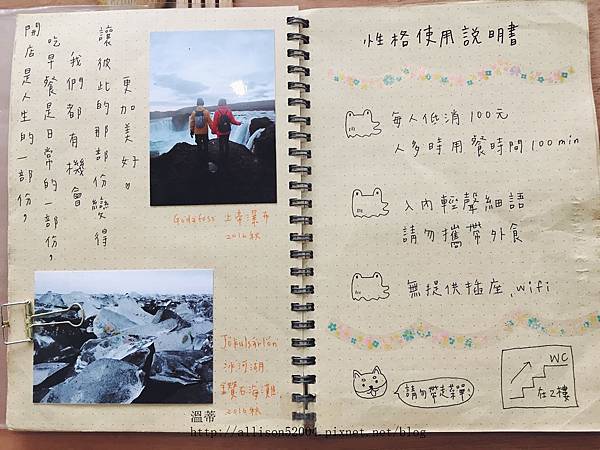 開店是人生的一部份,
吃早餐是日常的一部份,
我們都有機會
讓彼此的那部份變得
更加美好。
Godafoss 上帝瀑布
2016秋
Jökulsárlón
冰河湖,
鑽石海灘,
2016秋
性格使用說明書
每人低消100元
人多時用餐時間100min
入內輕聲細語
請勿攜帶外食
無提供插座、wifi
請勿帶走菜單
WC
在2樓
溫蒂
http://allison52004.pixnet.net/blog